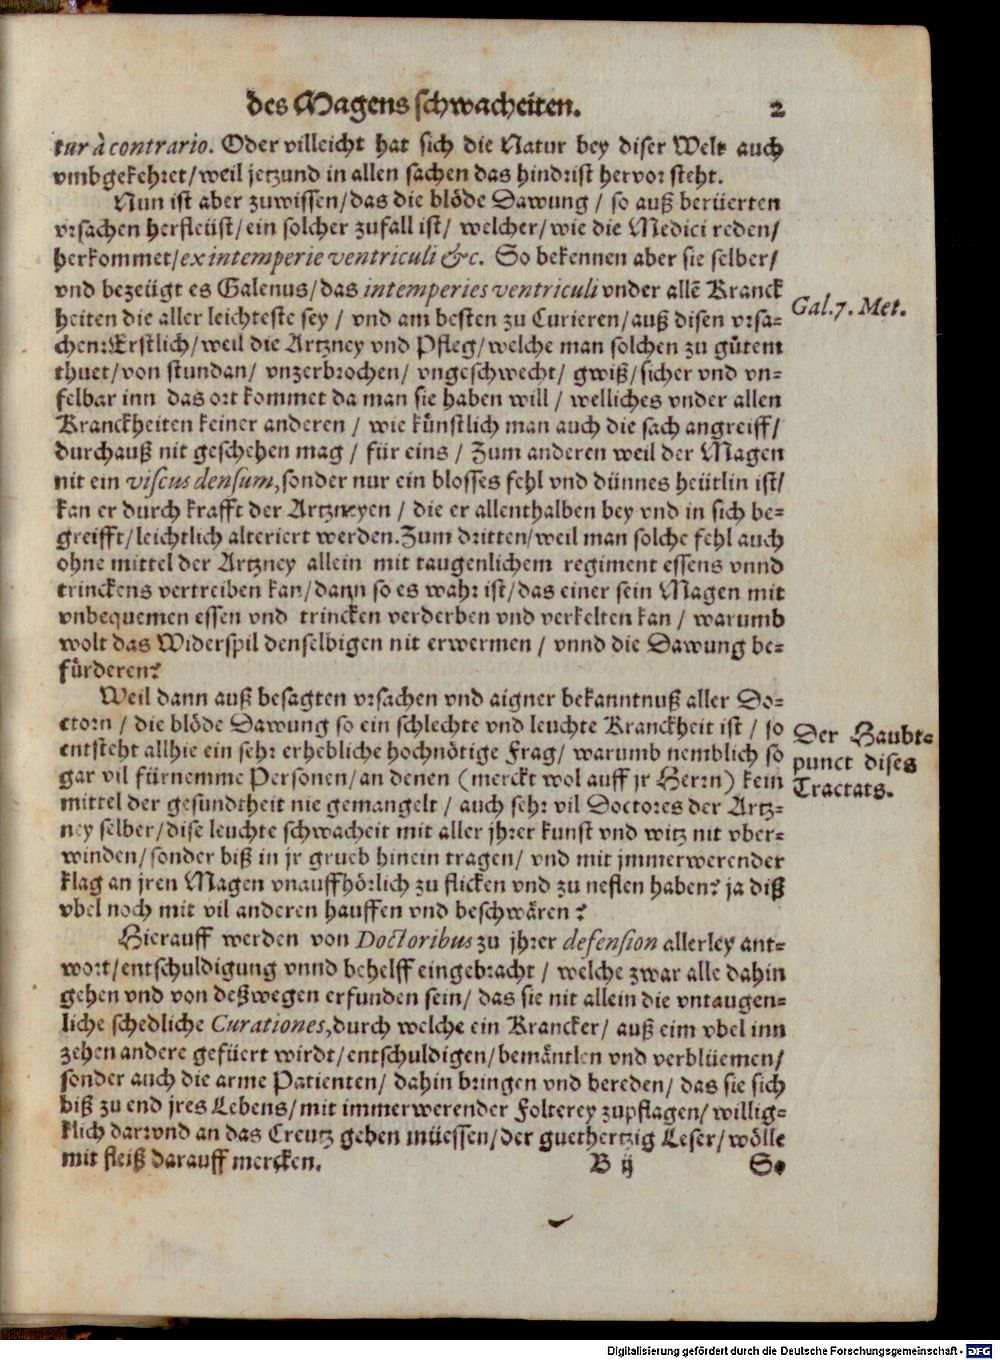 des Magens schwacheiten. 2
tur à contrario. Oder villeicht hat sich die Natur bey diser Welt auch
vmbgekehret/weil jetzund in allen sachen das hindrist hervor steht.
Nun ist aber zuwissen/das die blöde Dawung / so auß berüerten
vrsachen herfleüst/ein solcher zufall ist/ welcher/wie die Medici reden/
herkommet/ex intemperie ventriculi &c. So bekennen aber sie selber/
vnd bezeügt es Galenus/das intemperies ventriculi vnder allē Kranck
heiten die aller leichteste sey / vnd am besten zu Curieren/auß disen vrsa-
chen: Erstlich/weil die Artzney vnd Pfleg/welche man solchen zu gůtem
thuet/von stundan/ vnzerbrochen/ vngeschwecht/ gwiß/sicher vnd vn-
felbar inn das ort kommet da man sie haben will / welliches vnder allen
Kranckheiten keiner anderen / wie künstlich man auch die sach angreiff/
durchauß nit geschehen mag / für eins / Zum anderen weil der Magen
nit ein viscus densum, sonder nur ein blosses fehl vnd dünnes heütlin ist/
kan er durch krafft der Artzneyen / die er allenthalben bey vnd in sich be-
greifft/leichtlich alteriert werden. Zum dritten/weil man solche fehl auch
ohne mittel der Artzney allein mit taugenlichem regiment essens vnnd
trinckens vertreiben kan/dann so es wahr ist/das einer sein Magen mit
vnbequemen essen vnd trincken verderben vnd verkelten kan / warumb
wolt das Widerspil denselbigen nit erwermen / vnnd die Dawung be-
fürderen?
Gal. 7. Met.
Weil dann auß besagten vrsachen vnd aigner bekanntnuß aller Do-
ctorn / die blöde Dawung so ein schlechte vnd leuchte Kranckheit ist / so
entsteht allhie ein sehr erhebliche hochnötige Frag/ warumb nemblich so
gar vil fürnemme Personen/an denen (merckt wol auff jr Herrn) kein
mittel der gesundtheit nie gemangelt / auch sehr vil Doctores der Artz-
ney selber/dise leuchte schwacheit mit aller jhrer kunst vnd witz nit vber-
winden/sonder biß in jr grueb hinein tragen/ vnd mit jmmerwerender
klag an jren Magen vnauffhörlich zu flicken vnd zu nestlen haben? ja diß
vbel noch mit vil anderen hauffen vnd beschwären?
Der Haubt-
punct dises
Tractats.
Hierauff werden von Doctoribus zu jhrer defension allerley ant-
wort/entschuldigung vnnd behelff eingebracht / welche zwar alle dahin
gehen vnd von deßwegen erfunden sein/ das sie nit allein die vntaugen-
liche schedliche Curationes, durch welche ein Krancker/ auß eim vbel inn
zehen andere gefüert wirdt/entschuldigen/bemäntlen vnd verblüemen/
sonder auch die arme Patienten/ dahin bringen vnd bereden/ das sie sich
biß zu end jres Lebens/mit immerwerender Folterey zuplagen/ willig-
klich darund an das Creutz geben müessen/der guethertzig Leser/wölle
mit fleiß darauff mercken. B ij So
Digitalisierung gefördert durch die Deutsche Forschungsgemeinschaft - DFG